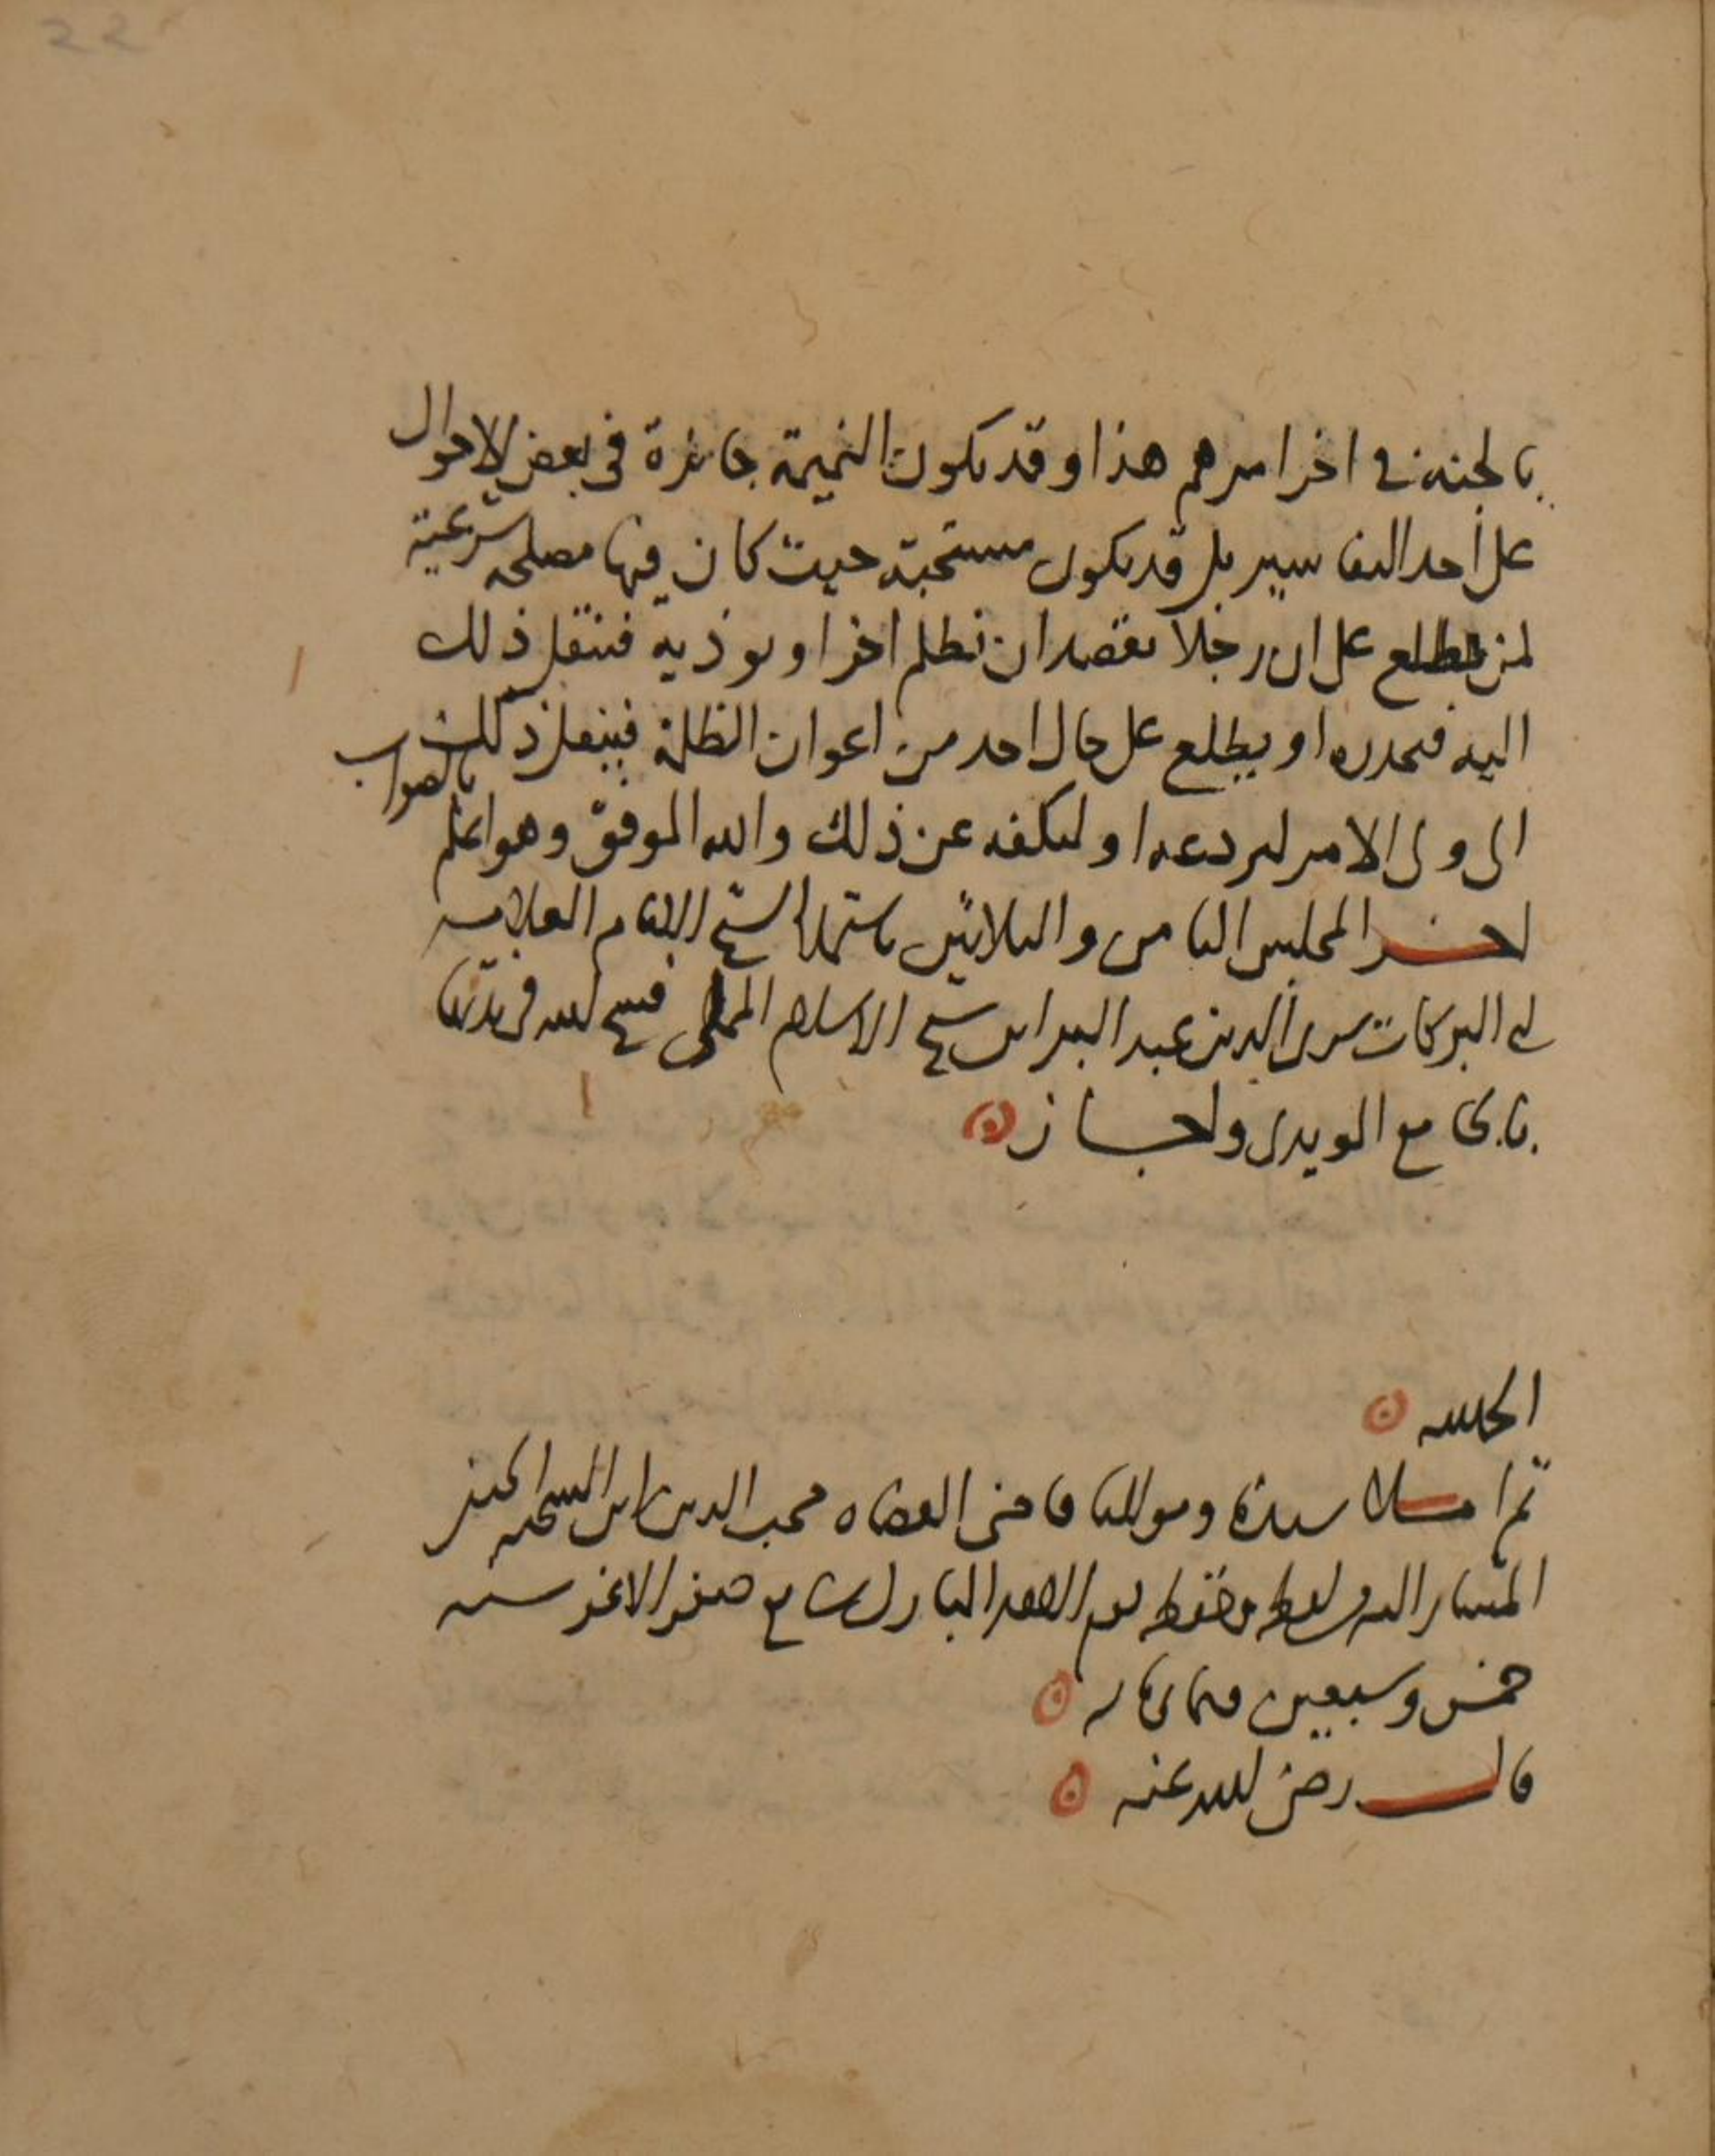 بالجنة في اخر امرهم هذا وقد تكون النميمة جائزة في بعض الاحوال
على أحد التفاسير بل قد يكون مستحبة حيث كان فيها مصلحة شرعية
لمن يطلع على ان رجلا يقصد ان يظلم اخر او يوذيه فينقل ذلك
اليه فيحذره او يطلع على حال احد من اعوان الظلمة فينقل ذلك
الى ولي الامر ليردعه او ليكفه عن ذلك والله الموفق وهو اعلم
بالصواب
اخر المجلس الثامن والثلاثين باستملا الشيخ الامام العلامة
ابي البركات سري الدين عبد البر ابن شيخ الاسلام المملي فسح الله في مدتهما
مع المويدي واجاز
الحمد لله
ثم املا سيدنا ومولانا قاضي القضاه محب الدين ابن الشحنه
المشار اليه من لفظه وحفظه يوم صفر الاغر سنه
خمس وسبعين وثمانمايه
قال رضي الله عنه